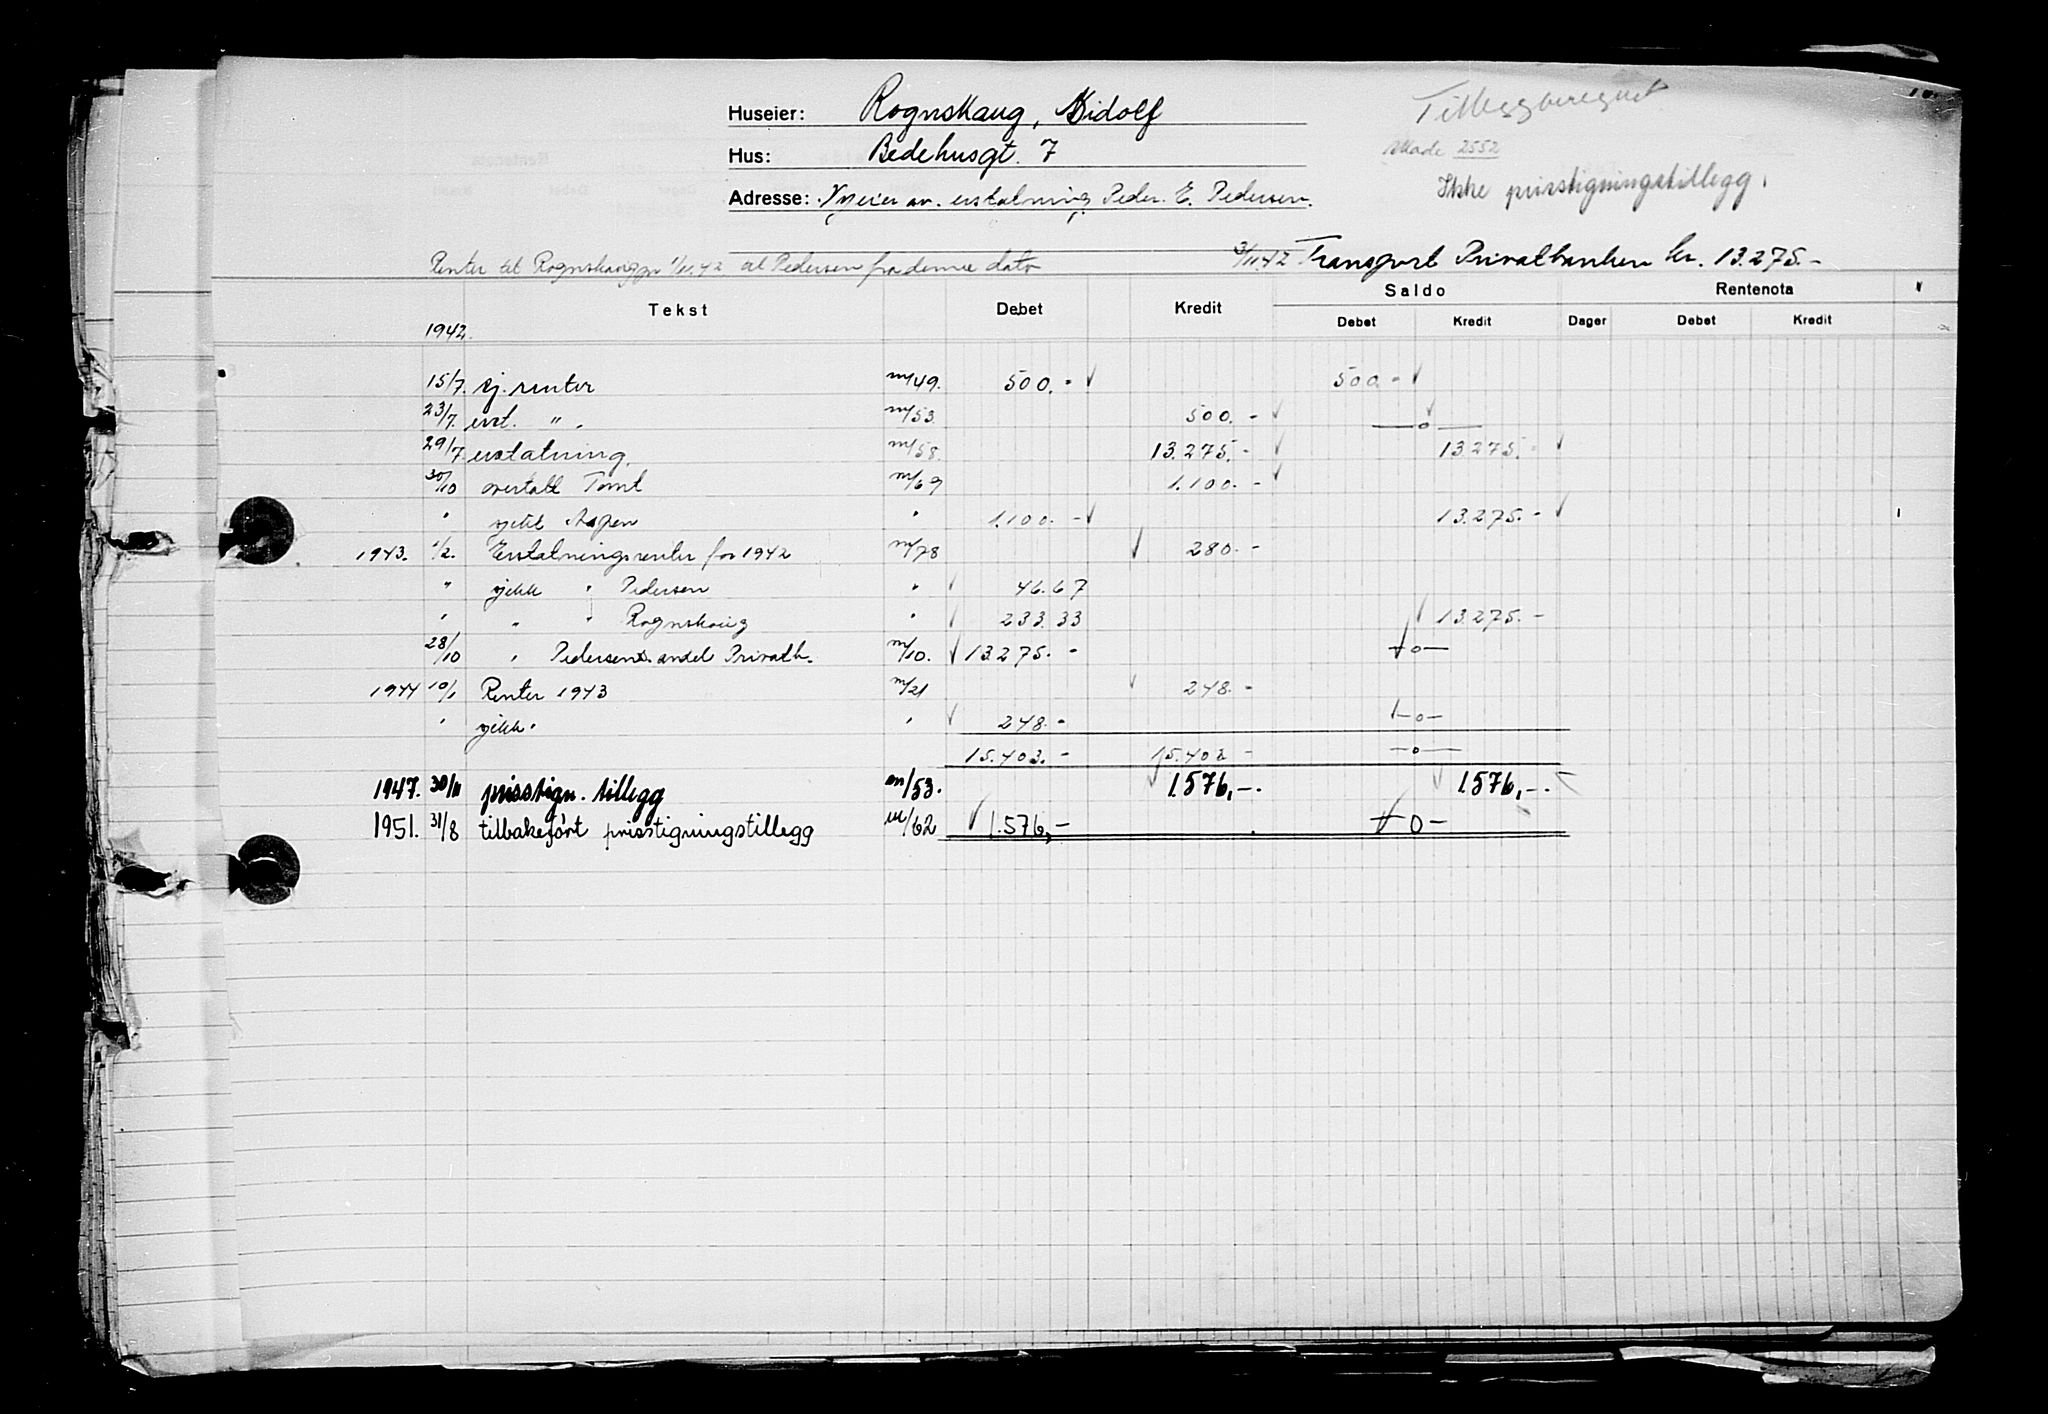 Huseier: Rognskaug, Midolf
Tilleggberegnet
Hus: Bedehusgt. 7
Skade 2552
Ikke prisstigningstillegg.
Adresse: Nyeier av erstatning Peder E. Pedersen.
3/11.42 Transport Privatbanken kr. 13.275.-
Renter til Rognskaug pr 1/11.42 til Pedersen fra denne dato
Tekst Debet Kredit Saldo Rentenota
Debet Kredit Dager Debet Kredit
1942.
15/7. renter m/49. 500.- 500.-
23/7. erst. " . m/53. 500.- —o—
29/7. erstatning. m/58. 13.275.- 13.275.-
30/10 Tomt m/69 1.100.-
" gikk " 1.100.- 13.275.-
1943. 1/2. Erstatningsrenter for 1942 m/78 280.-
" gikk " Pedersen " 46.67
" " " Rognskaug " 233.33 13.275.-
28/10 " Pedersens andel Privatb. m/10. 13.275.- —o—
1944 10/1 Renter 1943 m/21 248.-
" gikk " " 248.- —o—
15.403.- 15.403.- —o—
1947. 30/11 prisstign. tillegg m/53. 1.576,-. 1.576,-.
1951. 31/8 tilbakeført prisstigningstillegg m/62 1.576,- —0—